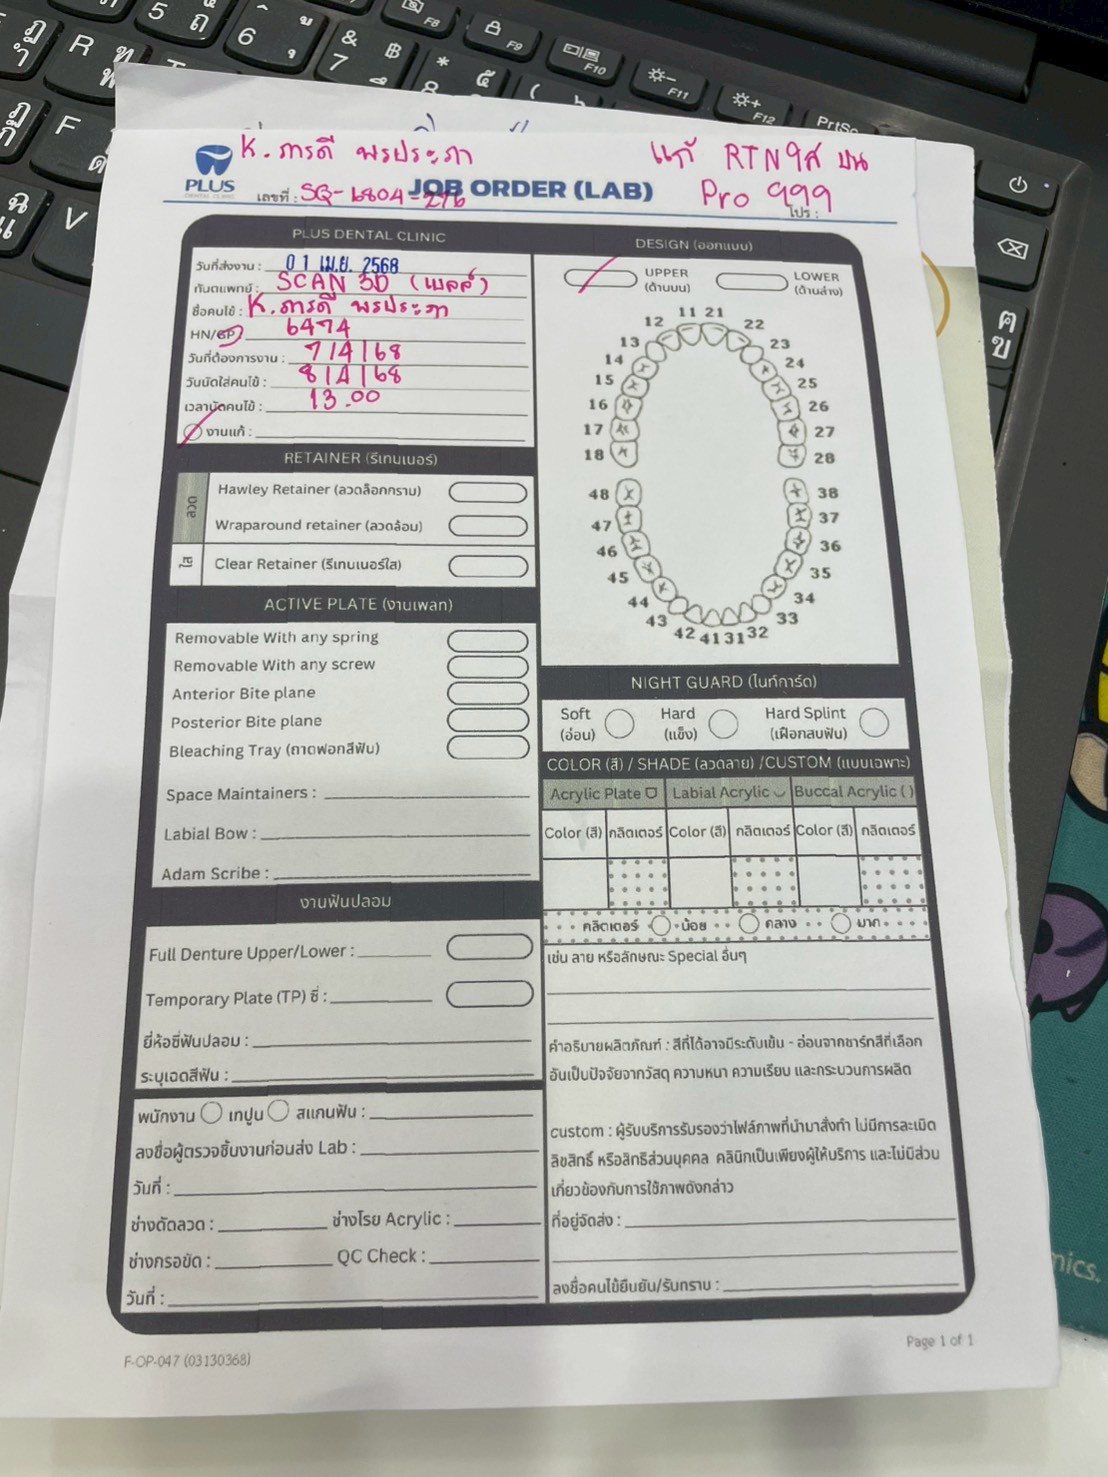 K. ภารดี พรประภา
แก้ RTN ใส บน
Pro 999
PLUS
DENTAL CLINIC
เลขที่ : SQ-6804-276
JOB ORDER (LAB)
โปร :
PLUS DENTAL CLINIC
วันที่ส่งงาน : 01 เม.ย. 2568
ทันตแพทย์ : SCAN 3D (เบลล์)
ชื่อคนไข้ : K. ภารดี พรประภา
HN/GP 6474
วันที่ต้องการงาน : 7/4/68
วันนัดใส่คนไข้ : 8/4/68
เวลานัดคนไข้ : 13.00
งานแก้ :
RETAINER (รีเทนเนอร์)
ลวด
Hawley Retainer (ลวดล็อกกราม)
Wraparound retainer (ลวดล้อม)
ใส
Clear Retainer (รีเทนเนอร์ใส)
ACTIVE PLATE (งานเพลท)
Removable With any spring
Removable With any screw
Anterior Bite plane
Posterior Bite plane
Bleaching Tray (ถาดฟอกสีฟัน)
Space Maintainers :
Labial Bow :
Adam Scribe :
งานฟันปลอม
Full Denture Upper/Lower :
Temporary Plate (TP) ซี่ :
ยี่ห้อซี่ฟันปลอม :
ระบุเฉดสีฟัน :
พนักงาน เทปูน สแกนฟัน :
ลงชื่อผู้ตรวจชิ้นงานก่อนส่ง Lab :
วันที่ :
ช่างดัดลวด : ช่างโรย Acrylic :
ช่างกรอขัด : QC Check :
วันที่ :
DESIGN (ออกแบบ)
UPPER
(ด้านบน)
LOWER
(ด้านล่าง)
11 21
12 22
13 23
14 24
15 25
16 26
17 27
18 28
48 38
47 37
46 36
45 35
44 34
43 33
42 41 31 32
NIGHT GUARD (ไนท์การ์ด)
Soft Hard Hard Splint
(อ่อน) (แข็ง) (เฝือกสบฟัน)
COLOR (สี) / SHADE (ลวดลาย) /CUSTOM (แบบเฉพาะ)
Acrylic Plate Labial Acrylic Buccal Acrylic ( )
Color (สี) กลิตเตอร์ Color (สี) กลิตเตอร์ Color (สี) กลิตเตอร์
กลิตเตอร์ น้อย กลาง มาก
เช่น ลาย หรือลักษณะ Special อื่นๆ
คำอธิบายผลิตภัณฑ์ : สีที่ได้อาจมีระดับเข้ม - อ่อนจากชาร์ทสีที่เลือก
อันเป็นปัจจัยจากวัสดุ ความหนา ความเรียบ และกระบวนการผลิต
custom : ผู้รับบริการรับรองว่าไฟล์ภาพที่นำมาสั่งทำ ไม่มีการละเมิด
ลิขสิทธิ์ หรือสิทธิส่วนบุคคล คลินิกเป็นเพียงผู้ให้บริการ และไม่มีส่วน
เกี่ยวข้องกับการใช้ภาพดังกล่าว
ที่อยู่จัดส่ง :
ลงชื่อคนไข้ยืนยัน/รับทราบ :
F-OP-047 (03130368)
Page 1 of 1